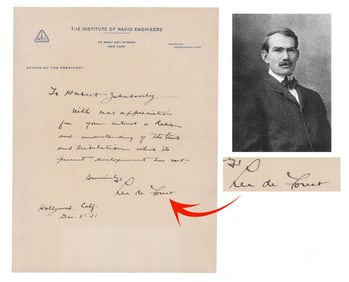 THE INSTITUTE OF RADIO ENGINEERS
NEW YORK
OFFICE OF THE PRESIDENT
To Hubert
With real appreciation
for your interest in Radio
and understanding of the trials
and tribulations which its
present development has cost.
Sincerely
Lee de Forest
Hollywood, Calif
Lee de Forest